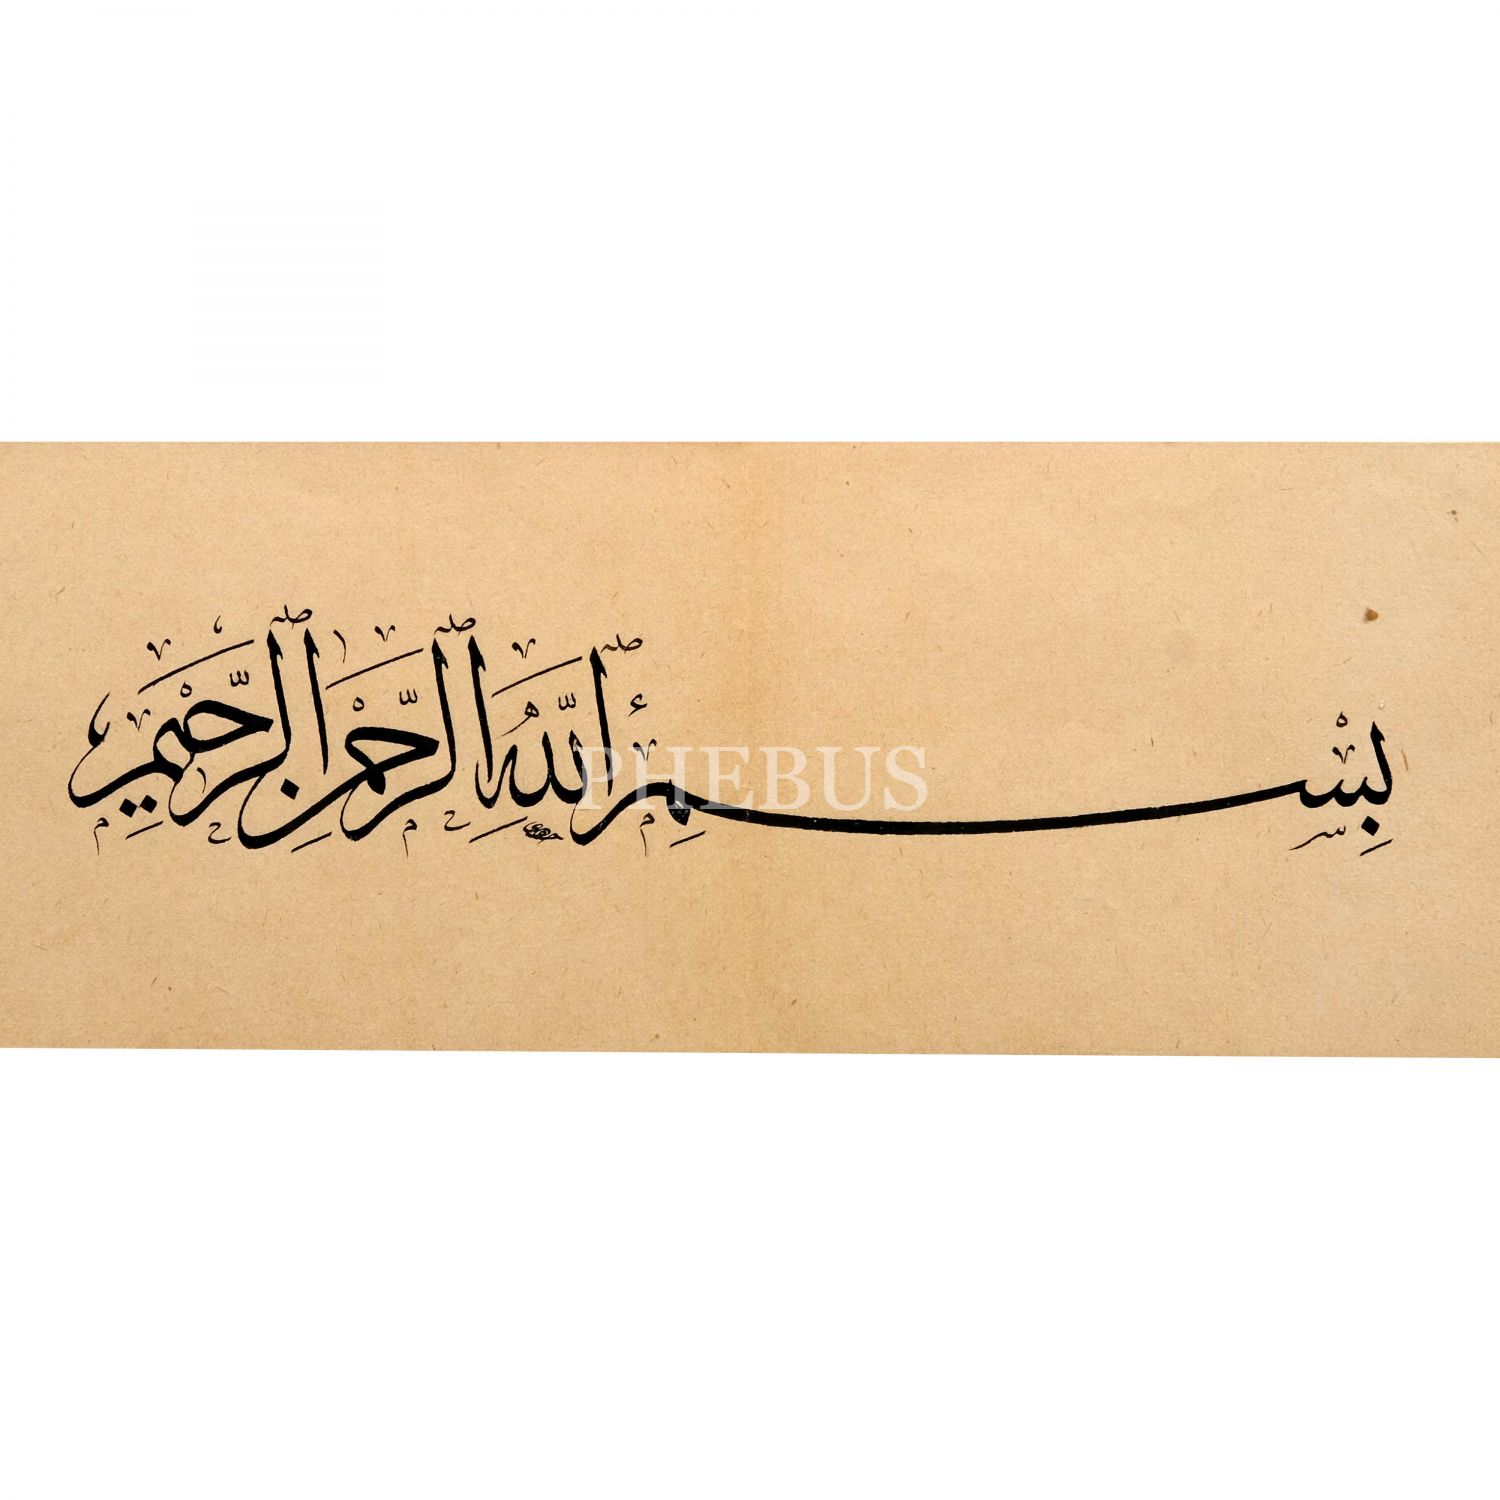 بِسْمِ اللَّهِ الرَّحْمٰنِ الرَّحِيمِ
PHEBUS